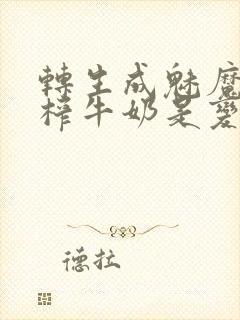 轉生成魅魔
榨牛奶是愛
德拉